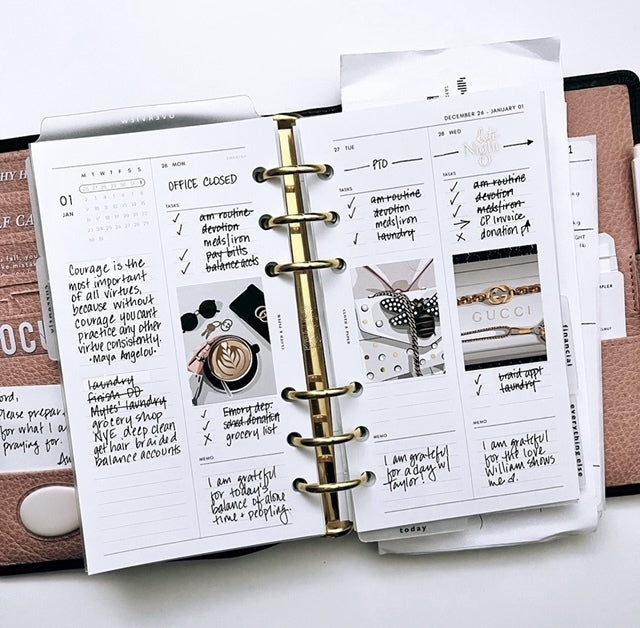 OVERVIEW
01
JAN
M T W T F S S
Courage is the
most important
of all virtues,
because without
courage you can't
practice any other
virtue consistently.
-Maya Angelou
laundry
Finish DD
Myles' laundry
grocery shop
NYE deep clean
get hair braided
balance accounts
26 MON
OFFICE CLOSED
TASKS
am routine
devotion
meds/iron
pay bills
balance accts
Emory dep.
sand donation
grocery list
MEMO
I am grateful
for today's
balance of alone
time + peopling.
DECEMBER 26 - JANUARY 01
27 TUE
PTO
TASKS
am routine
devotion
meds/iron
laundry
MEMO
I am grateful
for a day w/
Taylor!
28 WED
late
Night
TASKS
am routine
devotion
meds/iron
CP Invoice
donation
GUCCI
braid appt
laundry
MEMO
I am grateful
for the love
William shows
me
today
financial
everything else
ord,
Please prepar
for what I a
praying for.